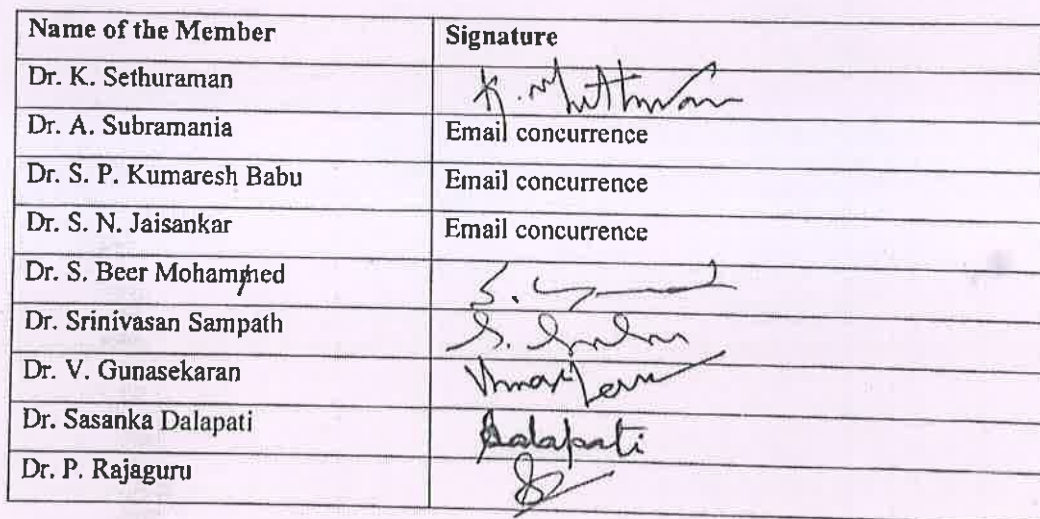 Name of the Member Signature
Dr. K. Sethuraman
Dr. A. Subramania Email concurrence
Dr. S. P. Kumaresh Babu Email concurrence
Dr. S. N. Jaisankar Email concurrence
Dr. S. Beer Mohammed
Dr. Srinivasan Sampath
Dr. V. Gunasekaran
Dr. Sasanka Dalapati Dalapati
Dr. P. Rajaguru